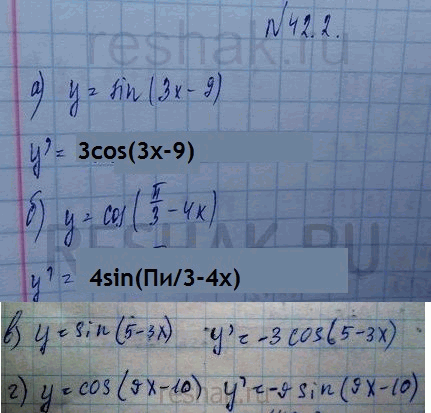 №42.2.
а) y = sin(3x-9)
y' = 3cos(3x-9)
б) y = cos(π/3 - 4x)
y' = 4sin(Пи/3-4x)
в) y = sin(5-3x) y' = -3cos(5-3x)
г) y = cos(9x-10) y' = -9 sin(9x-10)
reshak.ru
RESHAK.RU
reshak.ru